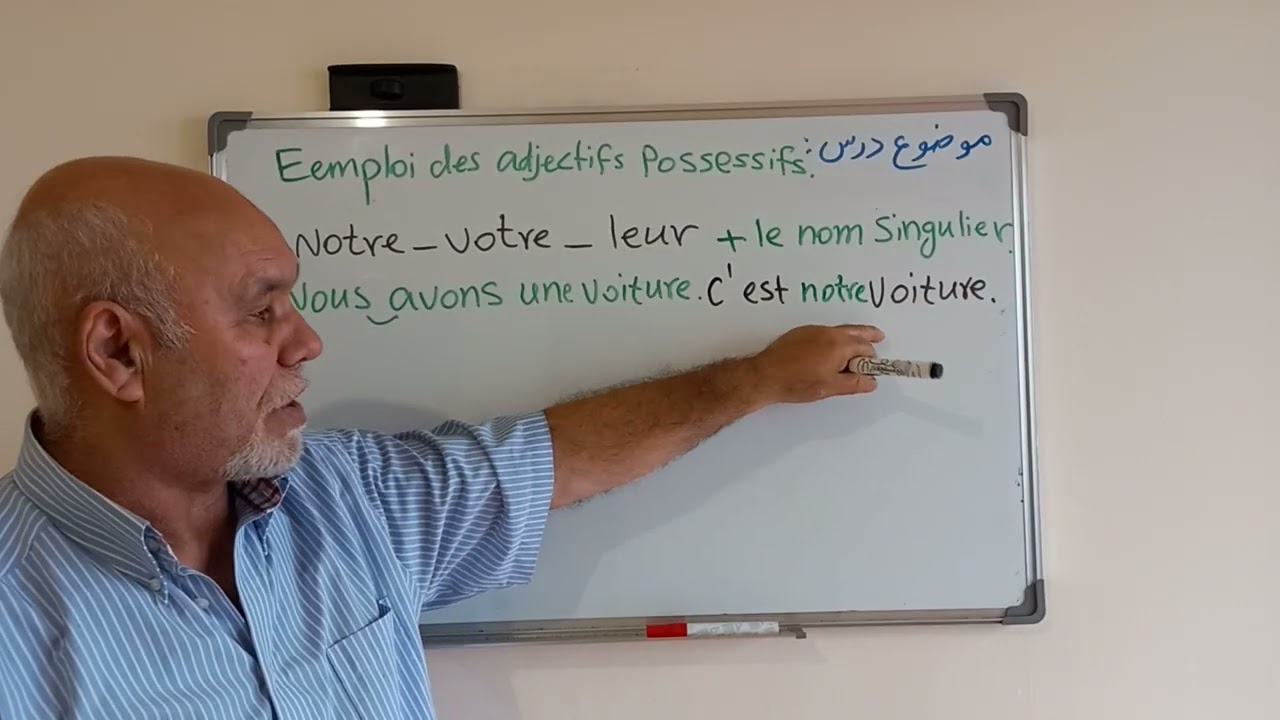 Eemploi des adjectifs Possessifs: موضوع درس
Notre _ votre _ leur + le nom Singulier.
Nous avons une voiture. C'est notre voiture.